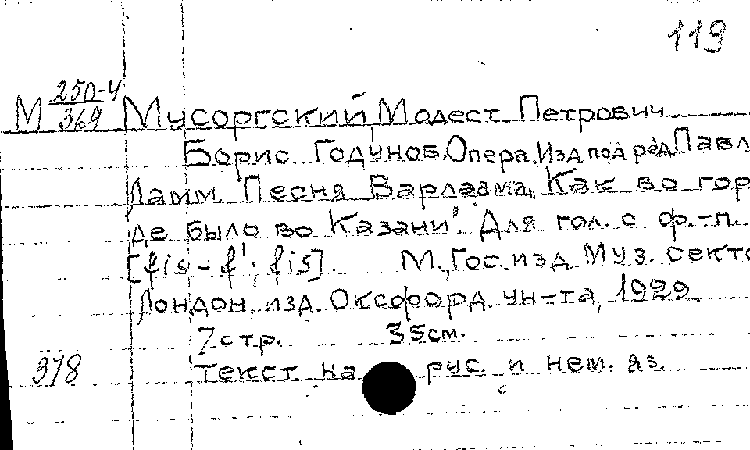 119
М 250-4/369 Мусоргский Модест Петрович
Борис Годунов. Опера. Изд под ред. Павл
Ламм. Песня Варлаама. Как во гор
де было во Казани". Для гол. с ф.-п.
[fis - f'; fis]. М., Гос. изд. Муз. секто
Лондон, изд. Оксфорд. ун-та, 1929
7 стр. 35 см.
378 Текст на рус. и нем. яз.